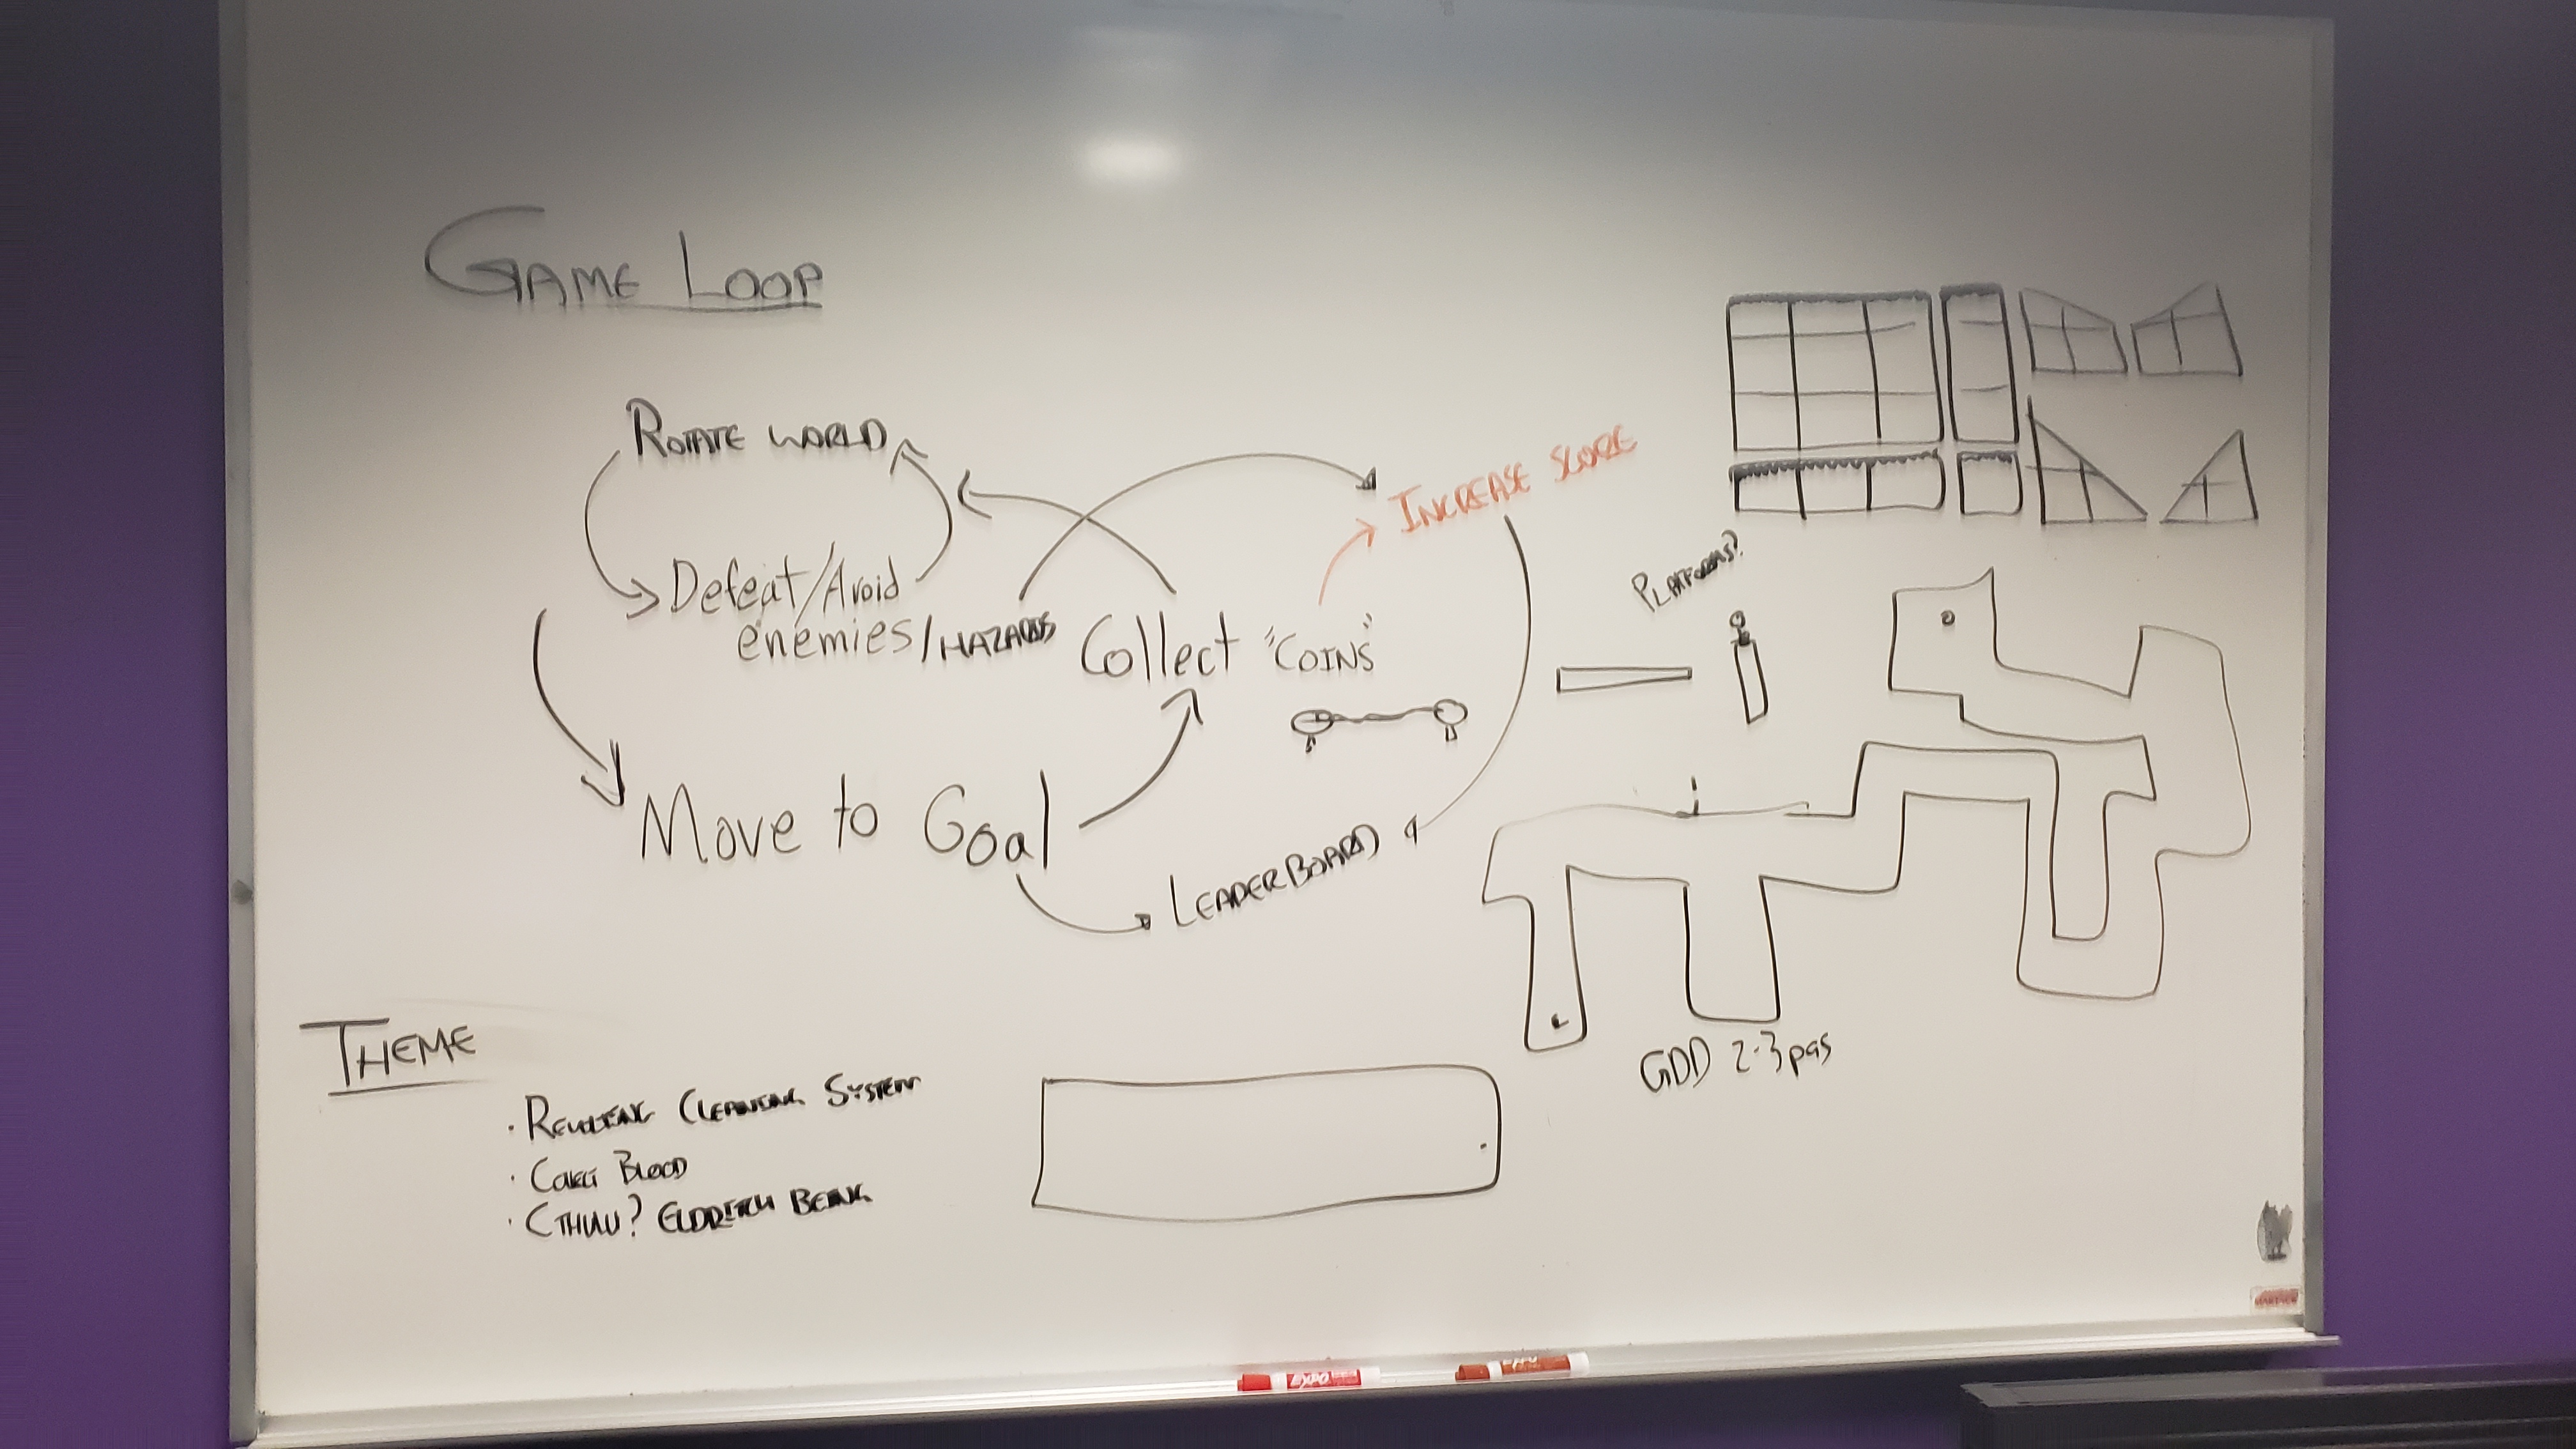 GAME LOOP
ROTATE WORLD
Defeat/Avoid
enemies/HAZARDS
Collect "COINS"
INCREASE SCORE
Move to Goal
LEADERBOARD
PLATFORMS?
GDD 2-3 pgs
THEME
· CLEANING SYSTEM
· BLOOD
· ELDRITCH BEING
EXPO
EXPO